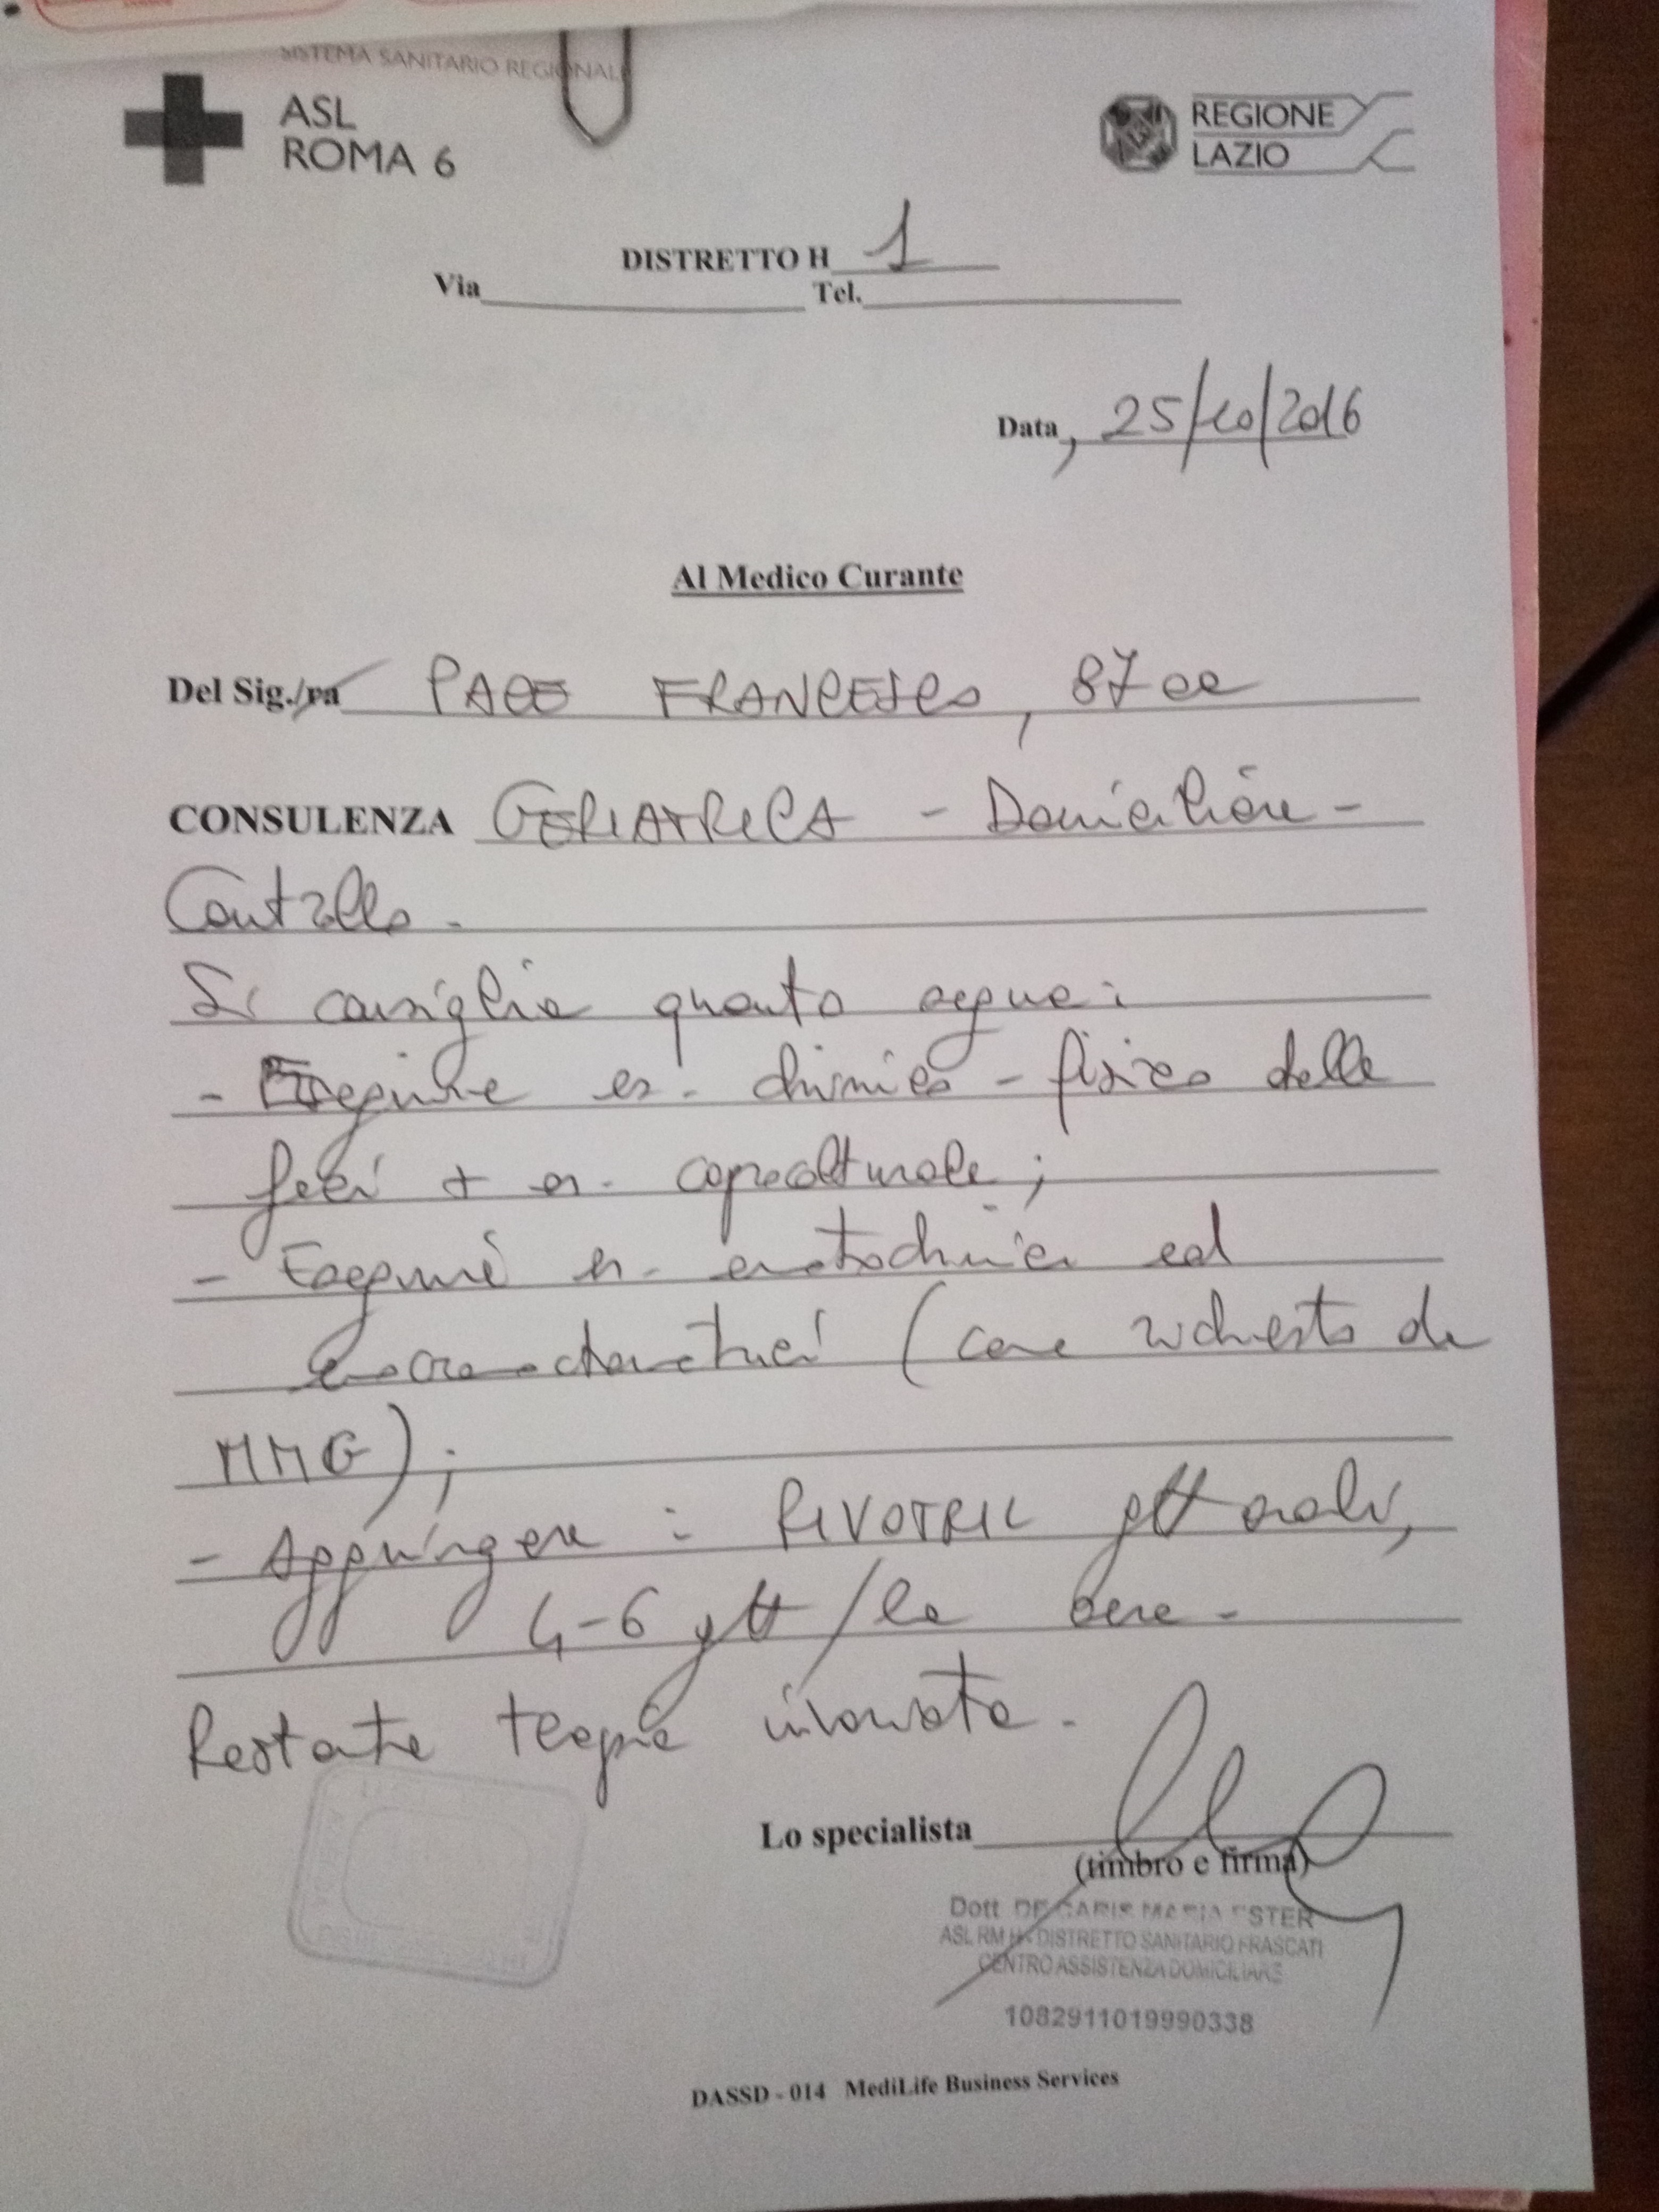 SISTEMA SANITARIO REGIONALE
ASL
ROMA 6
REGIONE
LAZIO
DISTRETTO H 1
Via Tel.
Data, 25/10/2016
Al Medico Curante
Del Sig./ra PACE FRANCESCO, 87 aa
CONSULENZA GERIATRICA - Domiciliare -
Controllo.
Si consiglia quanto segue:
- Eseguire es. chimico-fisico delle
feci + es. coprocolturale;
- Eseguire es. ematochimici ed
(come richiesto da
MMG);
- Aggiungere: RIVOTRIL gtt orali,
4-6 gtt/la sera.
Restante terapia invariata.
Lo specialista
(timbro e firma)
Dott. DE CARIS MARIA ESTER
ASL RM H - DISTRETTO SANITARIO FRASCATI
CENTRO ASSISTENZA DOMICILIARE
1082911019990338
DASSD - 014 MediLife Business Services